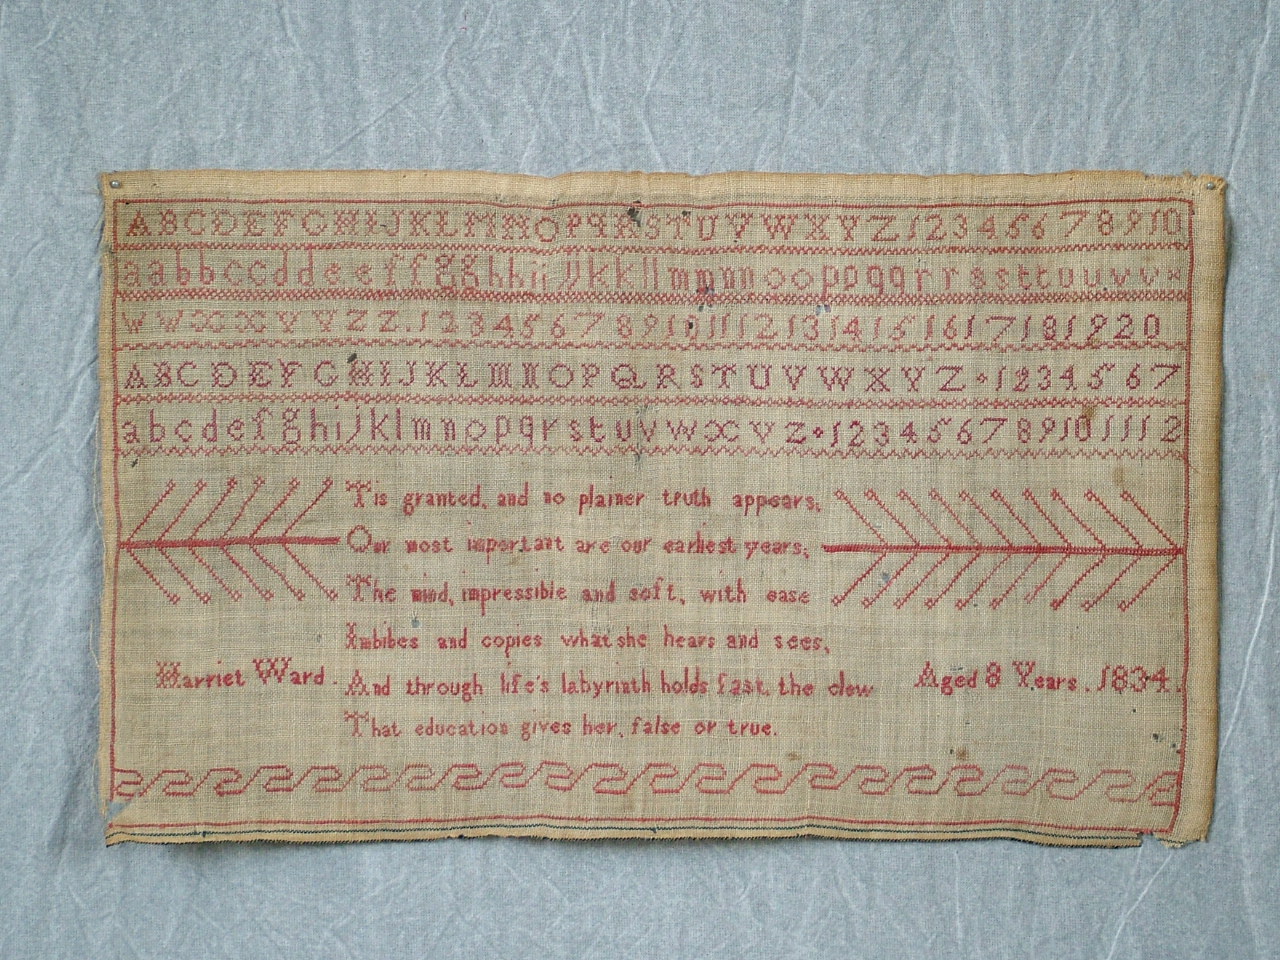 A B C D E F G H I J K L M N O P Q R S T U V W X Y Z 1 2 3 4 5 6 7 8 9 10
a a b b c c d d e e f f g g h h i i j j k k l l m m n n o o p p q q r r s s t t u u v v
w w x x y y z z . 1 2 3 4 5 6 7 8 9 10 11 12 13 14 15 16 17 18 19 20
A B C D E F G H I J K L M N O P Q R S T U V W X Y Z 1 2 3 4 5 6 7
a b c d e f g h i j k l m n o p q r s t u v w x y z 1 2 3 4 5 6 7 8 9 10 11 12
Tis granted, and no plainer truth appears,
Our most important are our earliest years;
The mind, impressible and soft, with ease
Imbibes and copies what she hears and sees,
Harriet Ward. And through life's labyrinth holds fast, the clew Aged 8 Years. 1834.
That education gives her, false or true.